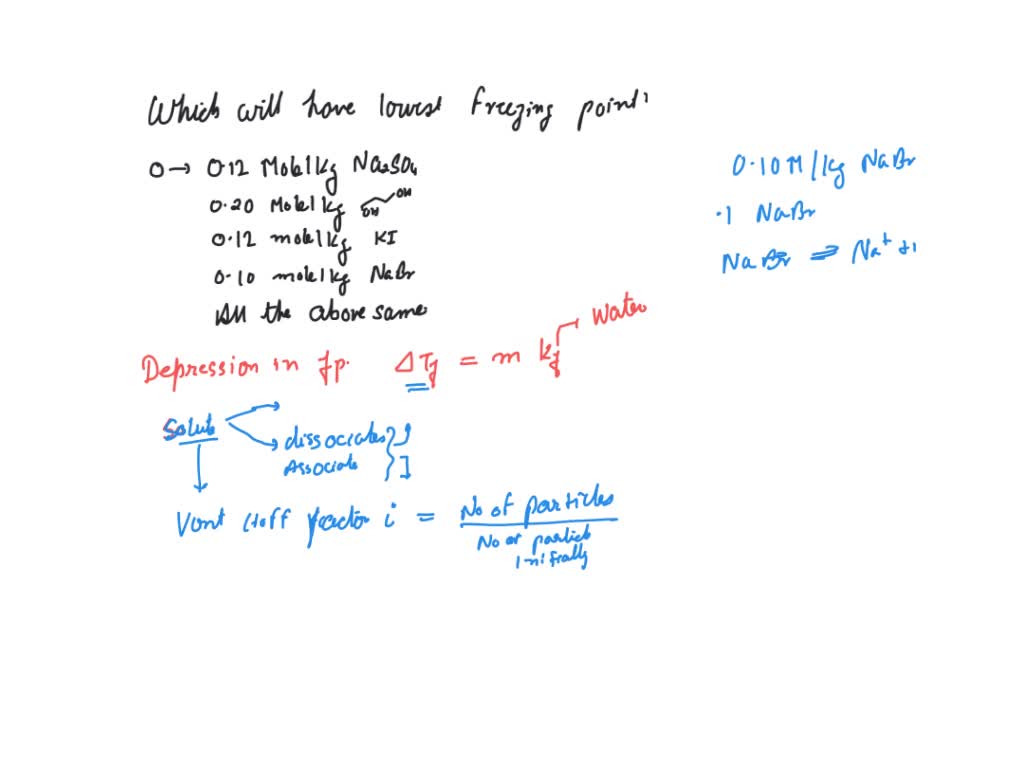 Which will have lowest freezing point?
0 → 0.12 Mole/kg Na2SO4
0.20 Mole/kg OH OH
0.12 mole/kg KI
0.10 mole/kg NaBr
All the above same
0.10 M/kg NaBr
.1 NaBr
NaBr ⇌ Na+ +
Depression in f.p. ΔTf = m Kf → Water
Solute
dissociates
Associate
Vont Hoff factor i = No of particles / No of particles initially